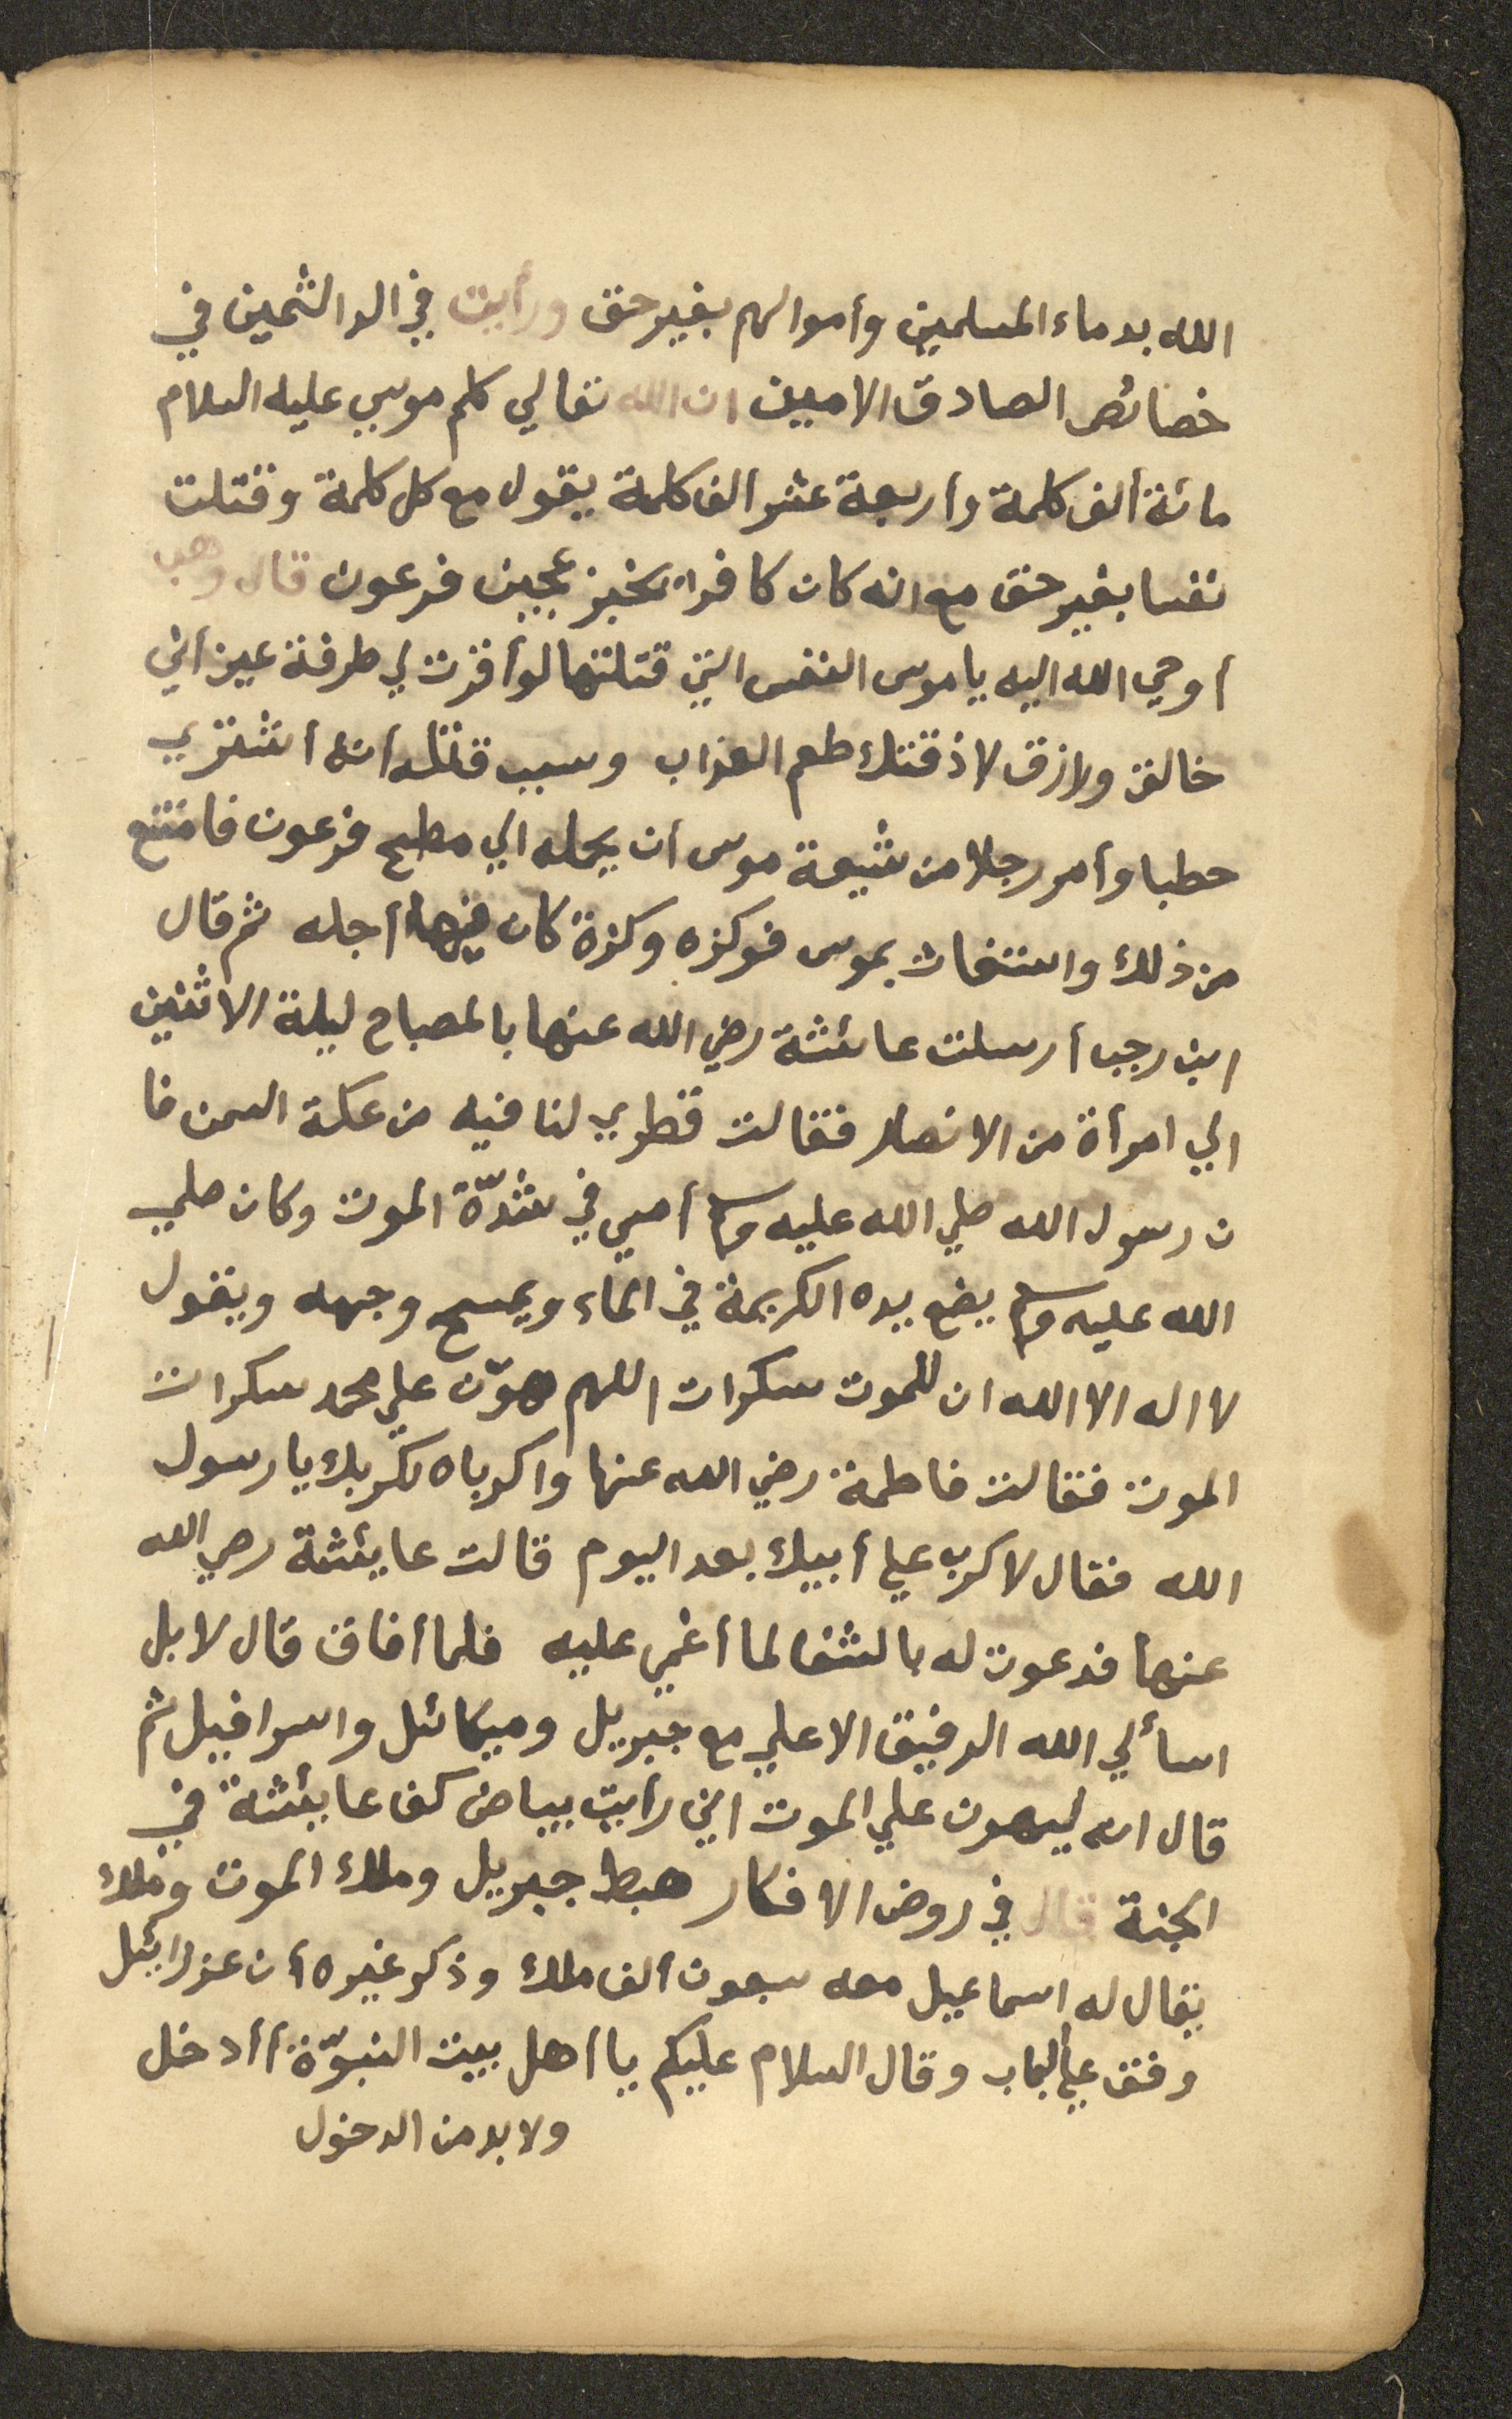 الله بدماء المسلمين وأموالهم بغير حق ورأيت في الدر الثمين في
خصائص الصادق الامين ان الله تعالي كلم موسي عليه السلام
مائة ألف كلمة وأربعة عشر الف كلمة يقول مع كل كلمة وقتلت
نفسا بغير حق مع انه كان كافرا يخبز عجين فرعون قال وهب
أوحي الله اليه يا موسى النفس التي قتلتها لو أقرت لي طرفة عين أني
خالق ورازق لاذقتك طعم العذاب وسبب قتله أنه اشتري
حطبا وأمر رجلا من شيعة موسى أن يحمله الي مطبخ فرعون فامتنع
من ذلك واستغاث بموسى فوكزه وكزة كان فيها أجله ثم قال
ابن رجب أرسلت عائشة رضي الله عنها بالمصباح ليلة الاثنين
الي امرأة من الانصار فقالت قطري لنا فيه من عكة السمن فا
ن رسول الله صلي الله عليه وسلم أمسي في شدّة الموت وكان صلي
الله عليه وسلم يضع يده الكريمة في الماء ويمسح وجهه ويقول
لا اله الا الله ان للموت سكرات اللهم هوّن علي محمد سكرات
الموت فقالت فاطمة رضي الله عنها واكرباه لكربك يا رسول
الله فقال لا كرب علي أبيك بعد اليوم قالت عايئشة رضي الله
عنها فدعوت له بالشفا لما أغمي عليه فلما أفاق قال لا بل
اسألي الله الرفيق الاعلي مع جبريل وميكائل واسرافيل ثم
قال انه ليهون علي الموت اني رأيت بياض كف عايئشة في
الجنة قال في روض الافكار هبط جبريل وملك الموت وملك
يقال له اسماعيل معه سبعون ألف ملك وذكر غيره أن عزرائيل
وقف علي الباب وقال السلام عليكم يا أهل بيت النبوّة أأدخل
ولا بد من الدخول